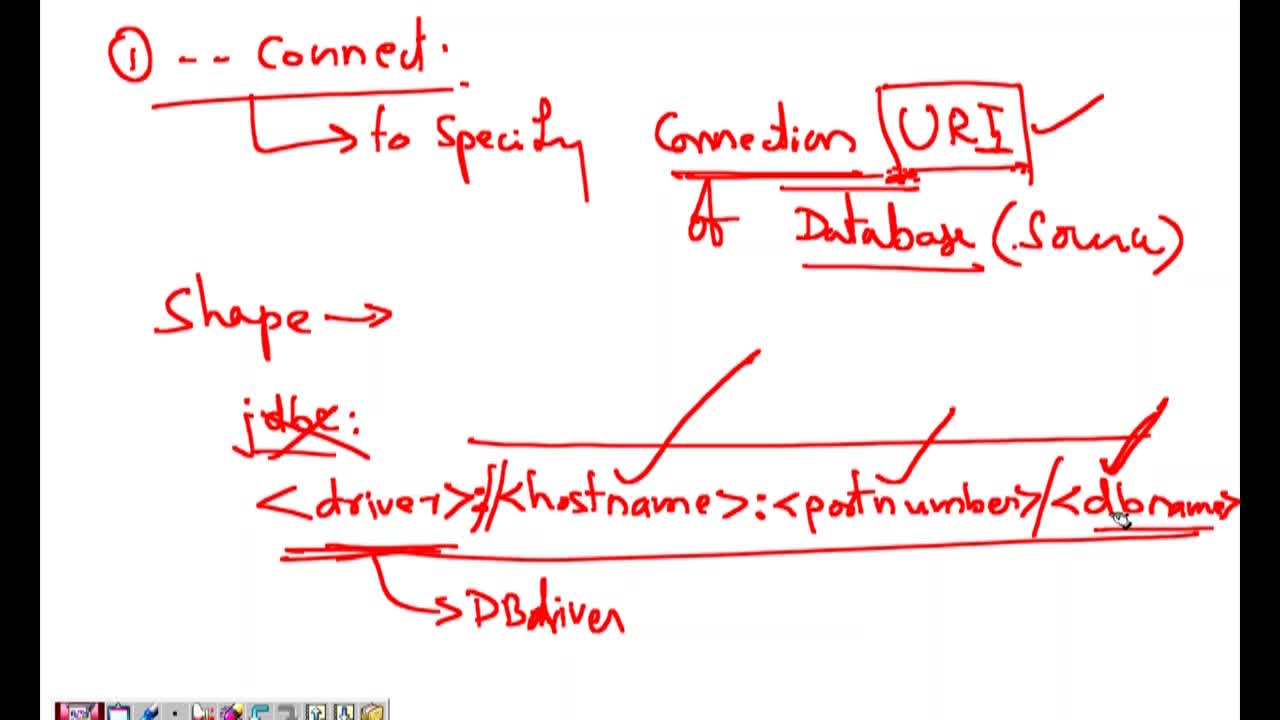 ① -- Connect.
to specify Connection URI
of Database (Source)
Shape →
jdbc:
<driver>://<hostname>:<portnumber>/<dbname>
DBdriver